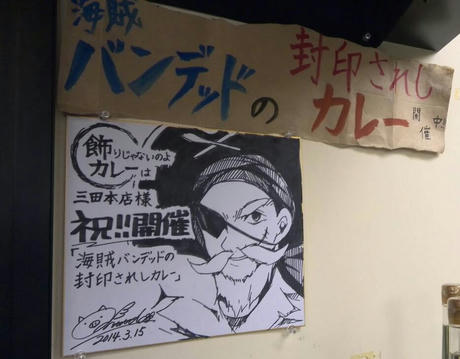 海賊
バンデッドの
封印されし
カレー
開催中!
飾りじゃないのよ
カレーは
三田本店様
祝!!開催
「海賊バンデッドの
封印されしカレー」
2014.3.15